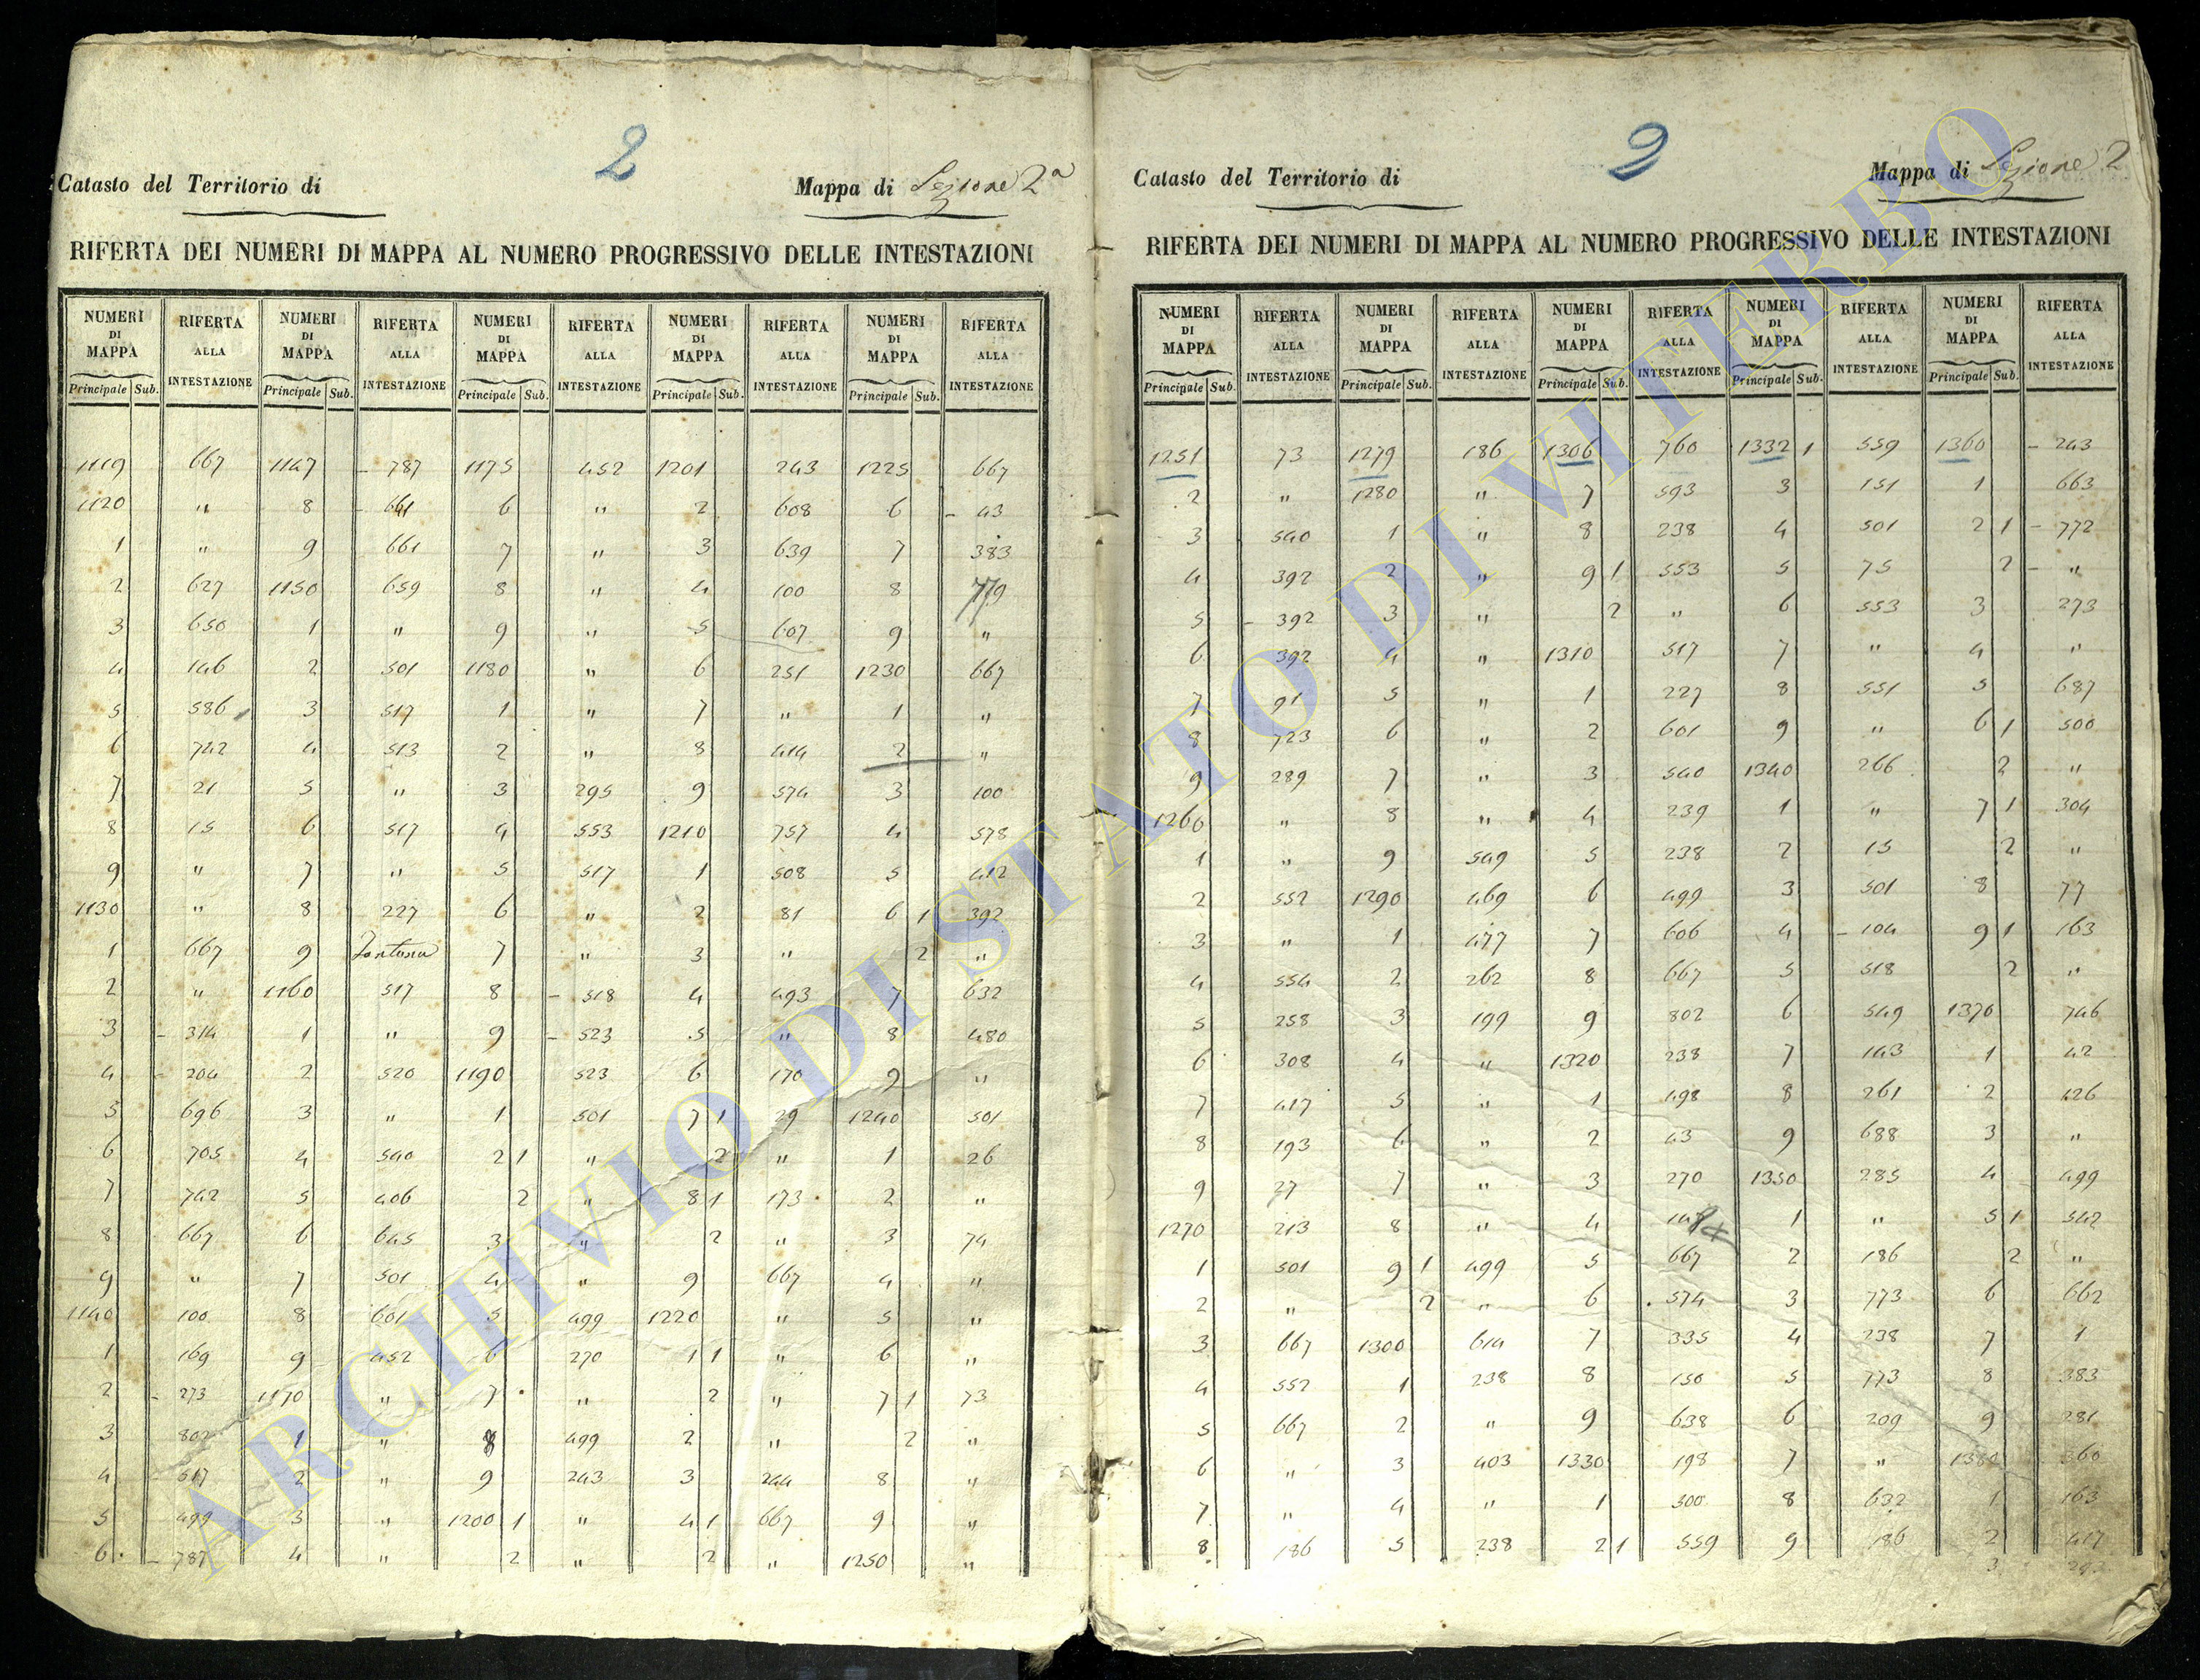 2
Catasto del Territorio di
Mappa di Sezione 2a
RIFERTA DEI NUMERI DI MAPPA AL NUMERO PROGRESSIVO DELLE INTESTAZIONI
NUMERI DI MAPPA RIFERTA ALLA INTESTAZIONE NUMERI DI MAPPA RIFERTA ALLA INTESTAZIONE NUMERI DI MAPPA RIFERTA ALLA INTESTAZIONE NUMERI DI MAPPA RIFERTA ALLA INTESTAZIONE NUMERI DI MAPPA RIFERTA ALLA INTESTAZIONE
Principale Sub. Principale Sub. Principale Sub. Principale Sub. Principale Sub.
1119 667 1147 - 787 1175 452 1201 243 1225 667
1120 " 8 - 661 6 " 2 608 6 - 43
1 " 9 661 7 " 3 639 7 383
2 627 1150 659 8 " 4 100 8 779
3 650 1 " 9 " 5 607 9 "
4 146 2 501 1180 " 6 251 1230 667
5 586 3 517 1 " 7 " 1 "
6 742 4 513 2 " 8 414 2 "
7 21 5 " 3 295 9 574 3 100
8 15 6 517 4 553 1210 757 4 578
9 " 7 " 5 517 1 508 5 412
1130 " 8 227 6 " 2 81 6 1 392
1 667 9 Fontana 7 " 3 " 2 "
2 " 1160 517 8 - 518 4 493 7 632
3 - 314 1 " 9 - 523 5 " 8 480
4 - 204 2 520 1190 523 6 170 9 "
5 696 3 " 1 501 7 1 29 1240 501
6 705 4 540 2 1 " 2 " 1 26
7 742 5 406 2 " 8 1 173 2 "
8 667 6 645 3 " 2 " 3 74
9 " 7 501 4 " 9 667 4 "
1140 100 8 601 5 499 1220 " 5 "
1 169 9 452 6 270 1 1 " 6 "
2 - 273 1170 " 7 " 2 " 7 1 73
3 802 1 " 8 499 2 " 2 "
4 - 617 2 " 9 243 3 244 8 "
5 499 3 " 1200 1 " 4 1 667 9 "
6 - 787 4 " 2 " 2 " 1250 "
2
Catasto del Territorio di
Mappa di Sezione 2
RIFERTA DEI NUMERI DI MAPPA AL NUMERO PROGRESSIVO DELLE INTESTAZIONI
NUMERI DI MAPPA RIFERTA ALLA INTESTAZIONE NUMERI DI MAPPA RIFERTA ALLA INTESTAZIONE NUMERI DI MAPPA RIFERTA ALLA INTESTAZIONE NUMERI DI MAPPA RIFERTA ALLA INTESTAZIONE NUMERI DI MAPPA RIFERTA ALLA INTESTAZIONE
Principale Sub. Principale Sub. Principale Sub. Principale Sub. Principale Sub.
1251 73 1279 186 1306 760 1332 1 559 1360 - 243
2 " 1280 " 7 593 3 151 1 663
3 540 1 " 8 238 4 501 2 1 - 772
4 392 2 " 9 1 553 5 75 2 - "
5 - 392 3 " 2 " 6 553 3 273
6 392 4 " 1310 517 7 " 4 "
7 91 5 " 1 227 8 551 5 687
8 723 6 " 2 601 9 " 6 1 500
9 289 7 " 3 540 1340 266 2 "
1260 " 8 " 4 239 1 " 7 1 304
1 " 9 549 5 238 2 15 2 "
2 552 1290 469 6 499 3 501 8 77
3 " 1 477 7 606 4 - 104 9 1 163
4 554 2 262 8 667 5 518 2 "
5 258 3 199 9 802 6 549 1370 746
6 308 4 " 1320 238 7 143 1 42
7 417 5 " 1 498 8 261 2 426
8 193 6 " 2 43 9 688 3 "
9 27 7 " 3 270 1350 285 4 499
1270 213 8 " 4 148 1 " 5 1 542
1 501 9 1 499 5 667 2 186 2 "
2 " 2 " 6 574 3 773 6 662
3 667 1300 614 7 335 4 238 7 1
4 552 1 238 8 150 5 773 8 383
5 667 2 " 9 638 6 209 9 281
6 " 3 403 1330 198 7 " 1380 360
7 " 4 " 1 500 8 632 1 163
8 186 5 238 2 1 559 9 186 2 417
3 29
ARCHIVIO DI STATO DI VITERBO